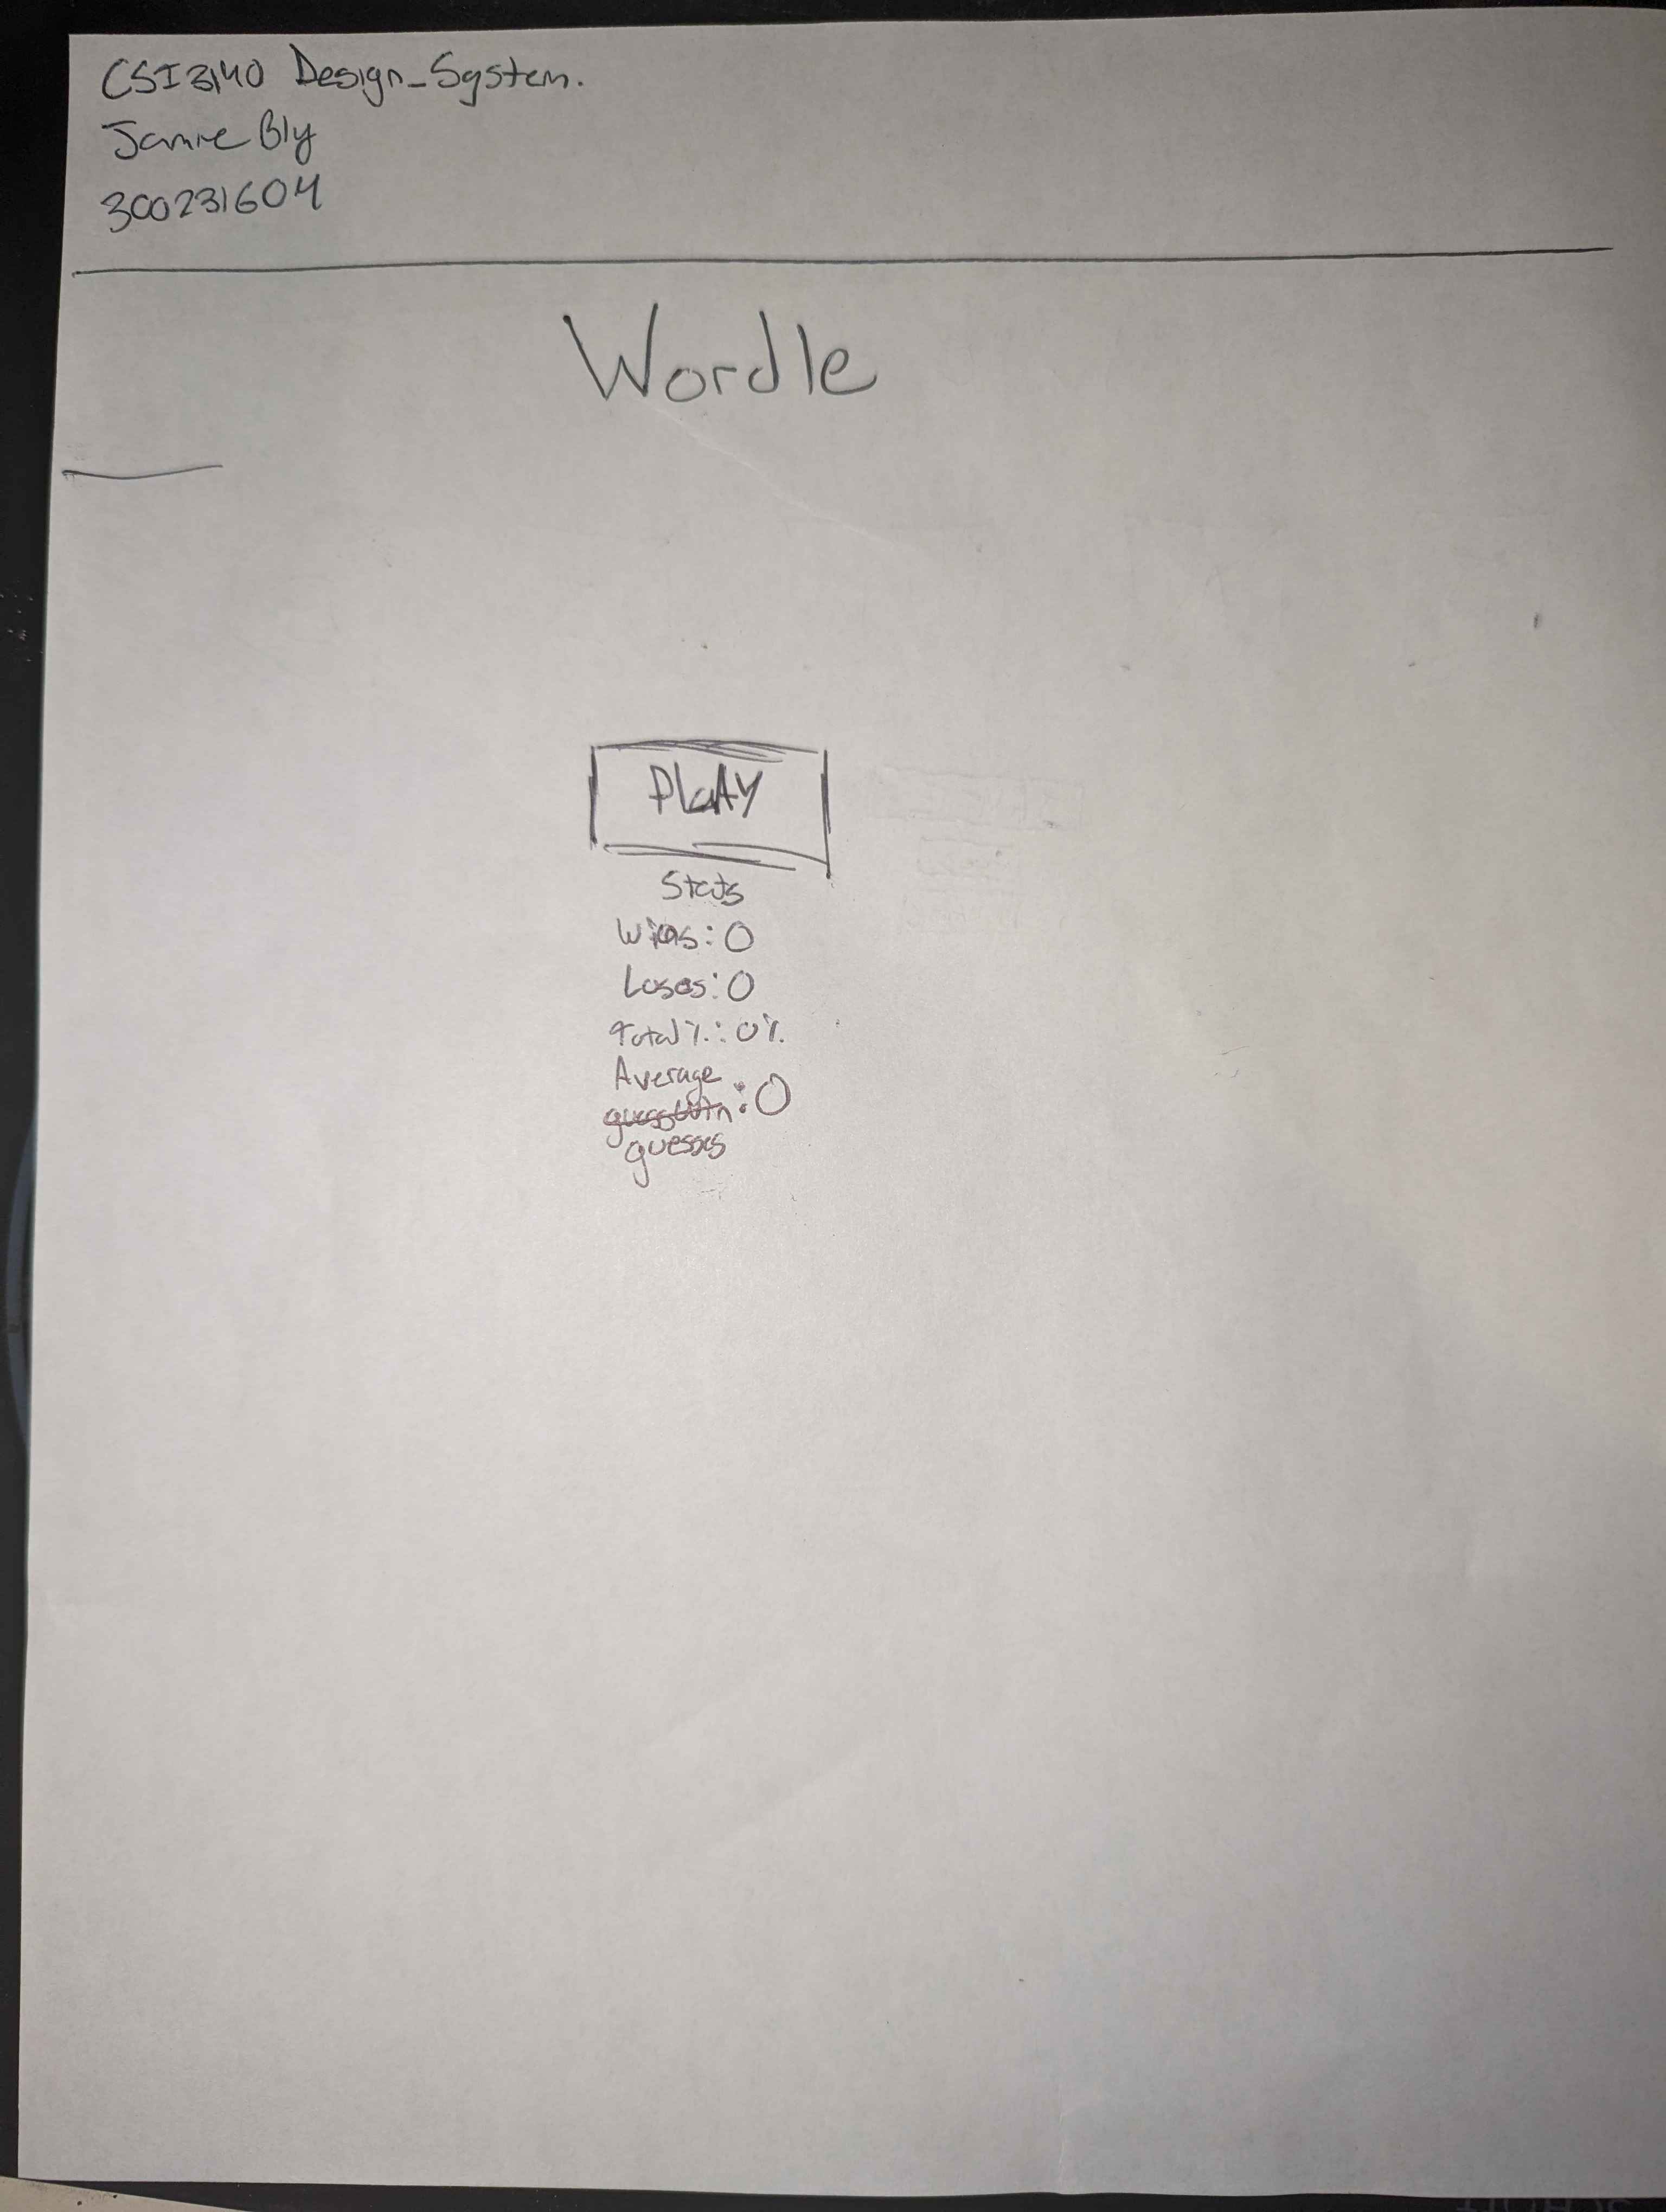 CSI3140 Design_System.
Jamie Bly
300231604
Wordle
PLAY
Stats
Wins: 0
Loses: 0
Total %: 0%
Average
: 0
guesses